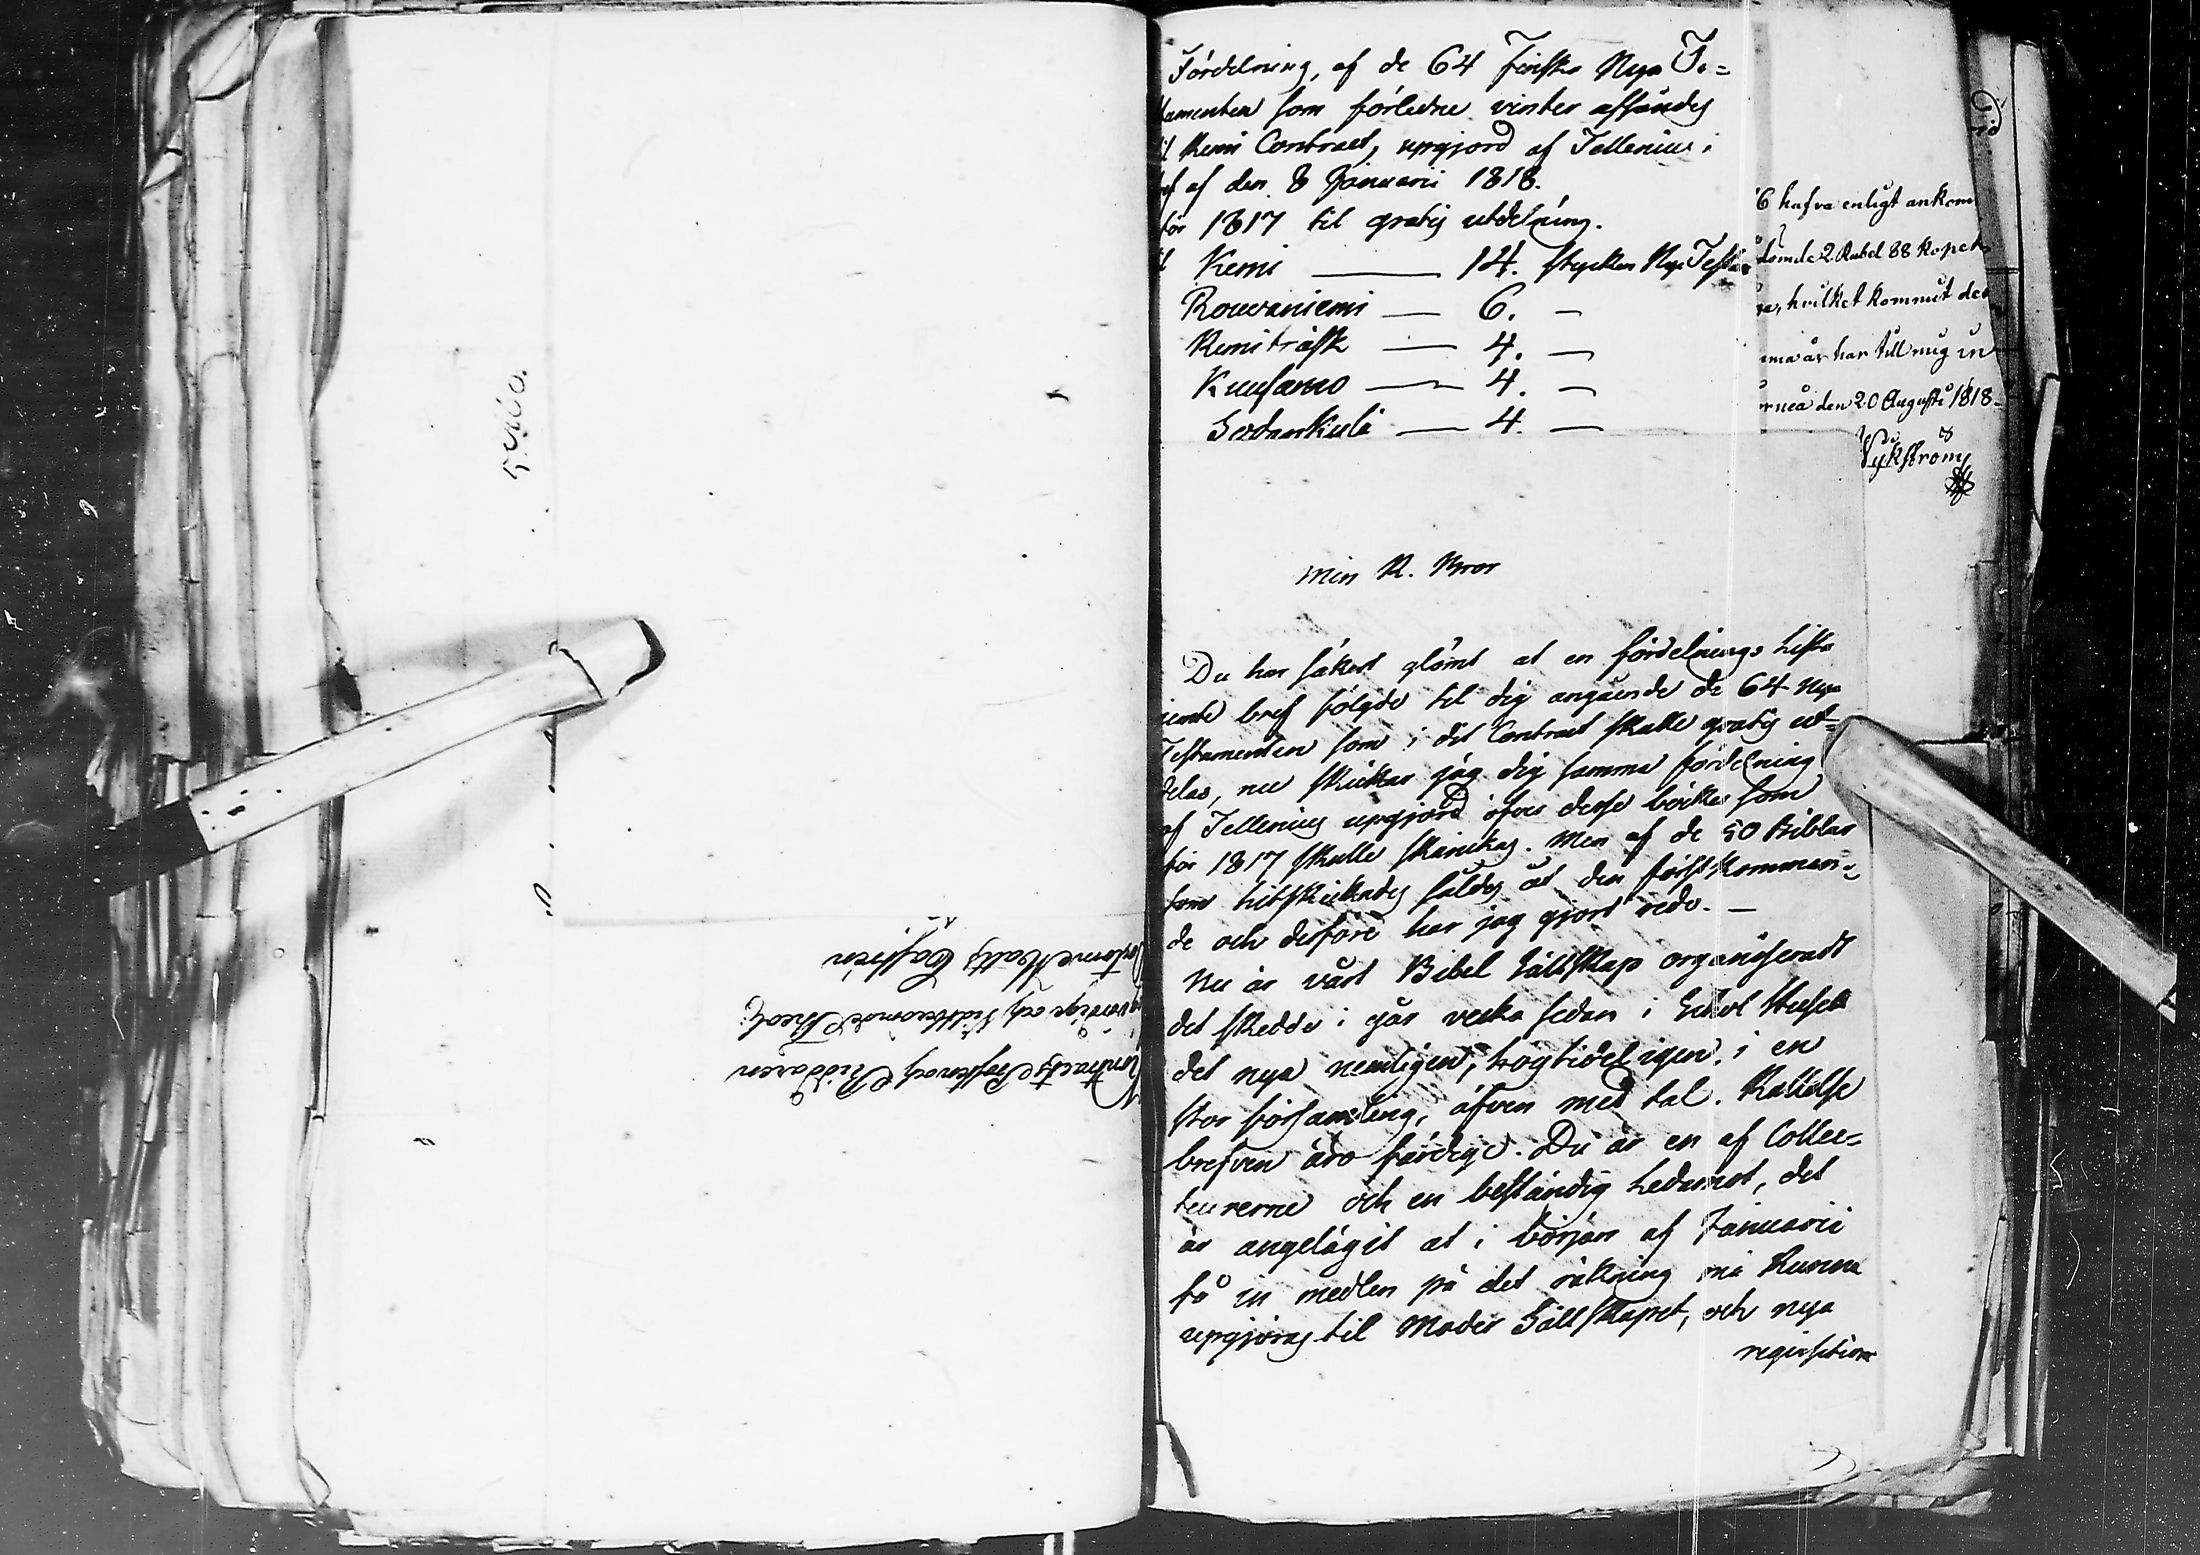 Contracts Prosten och Riddaren
vördige och Vidtberömde Theol:
Matts Castrén
Fördelning, af de 64 Finska Nya Te=
stamenten som förledne vinter afsändes
til Kemi Contract, upgjord af Tellenius i
bref af den 8 Januarii 1818.
för 1817 til gratis utdelning.
til Kemi — 14. stycken Nya Testam
Rouvaniemi — 6. —
Kemiträsk — 4. —
Kuusamo — 4. —
Sodankylä — 4. —
6 hafva enligt ankom
dömde 2 Rubel 88 kopek
hvilket kommit des
ma år har till mig in
orneå den 20 Augusti 1818.
Wykström
min K. Bror
Du har säkert glömt at en fördelnings lista
bref följde til dig angående de 64 Nya
Testamenten som i dit Contract skulle gratis ut=
delas, nu skickar jag dig samma fördelning
af Tellenius upgjord öfver desse böcker som
för 1817 skulle skänkas. Men af de 50 Biblar
som hitskickades såldes åt den förstkomman=
de och derföre har jag gjort redo. —
Nu är vårt Bibel Sällskap organiseradt
det skedde i går vecka sedan i Schol Huset
det nya nemligen, högtideligen, i en
stor församling, äfven med tal. Kallelse
brefven äro färdige. Du är en af Collec=
teurerne och en beständig Ledamot, det
är angelägit at i början af Januarii
få in medlen på det räkning må kunna
upgjöras til Moder Sällskapet, och nya
requisition